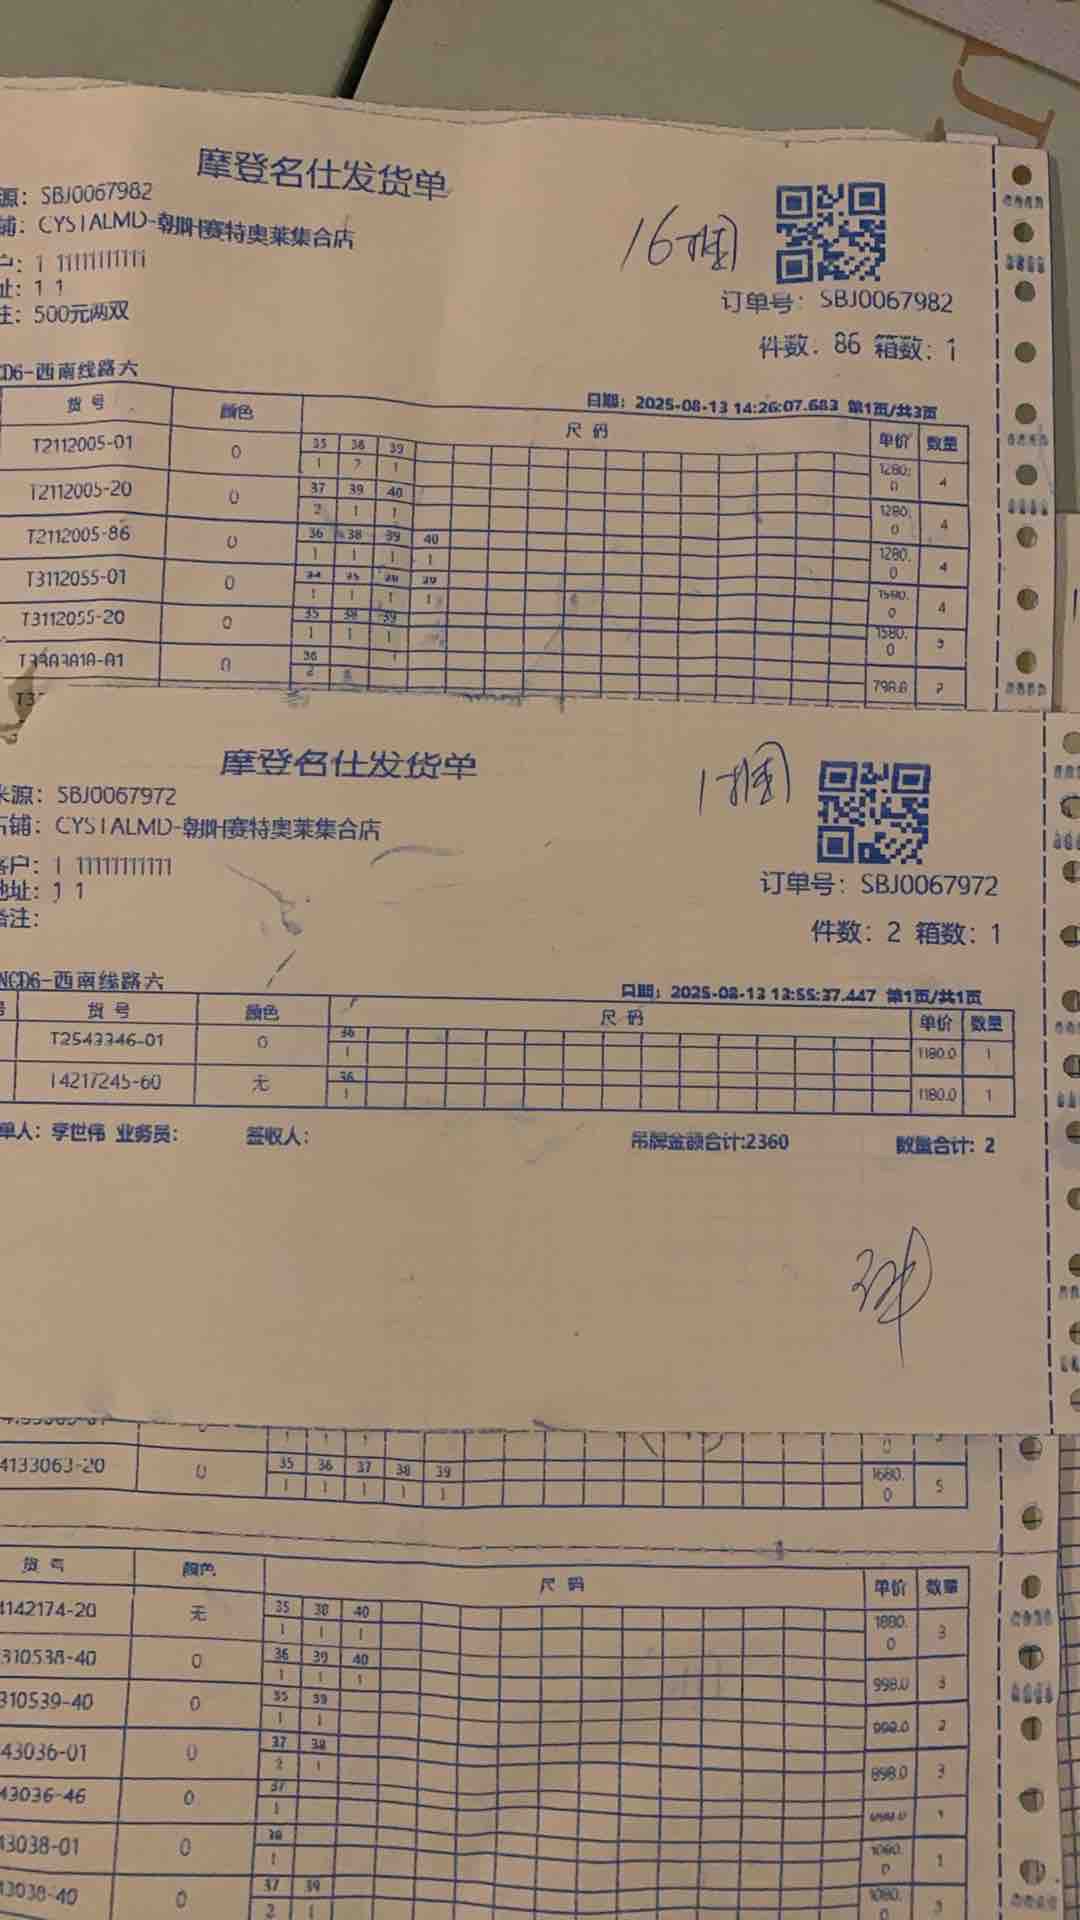 摩登名仕发货单
源: SBJ0067982
铺: CYSTALMD-朝阳H赛特奥莱集合店
户: 1 11111111111
址: 1 1
注: 500元两双
订单号: SBJ0067982
件数: 86 箱数: 1
CD6-西南线路六
日期: 2025-08-13 14:26:07.683 第1页/共3页
货号 颜色 尺码 单价 数量
35 38 39
T2112005-01 0 1 2 1 1280.0 4
37 39 40
T2112005-20 0 2 1 1 1280.0 4
36 38 39 40
T2112005-86 0 1 1 1 1 1280.0 4
T3112055-01 0 1 1 1 1 1580.0 4
35 38 39
T3112055-20 0 1 1 1 1580.0 3
36
0 2 798.0 2
T3
摩登名仕发货单
来源: SBJ0067972
店铺: CYSTALMD-朝阳H赛特奥莱集合店
客户: 1 11111111111
地址: 1 1
备注:
订单号: SBJ0067972
件数: 2 箱数: 1
NCD6-西南线路六
日期: 2025-08-13 13:55:37.447 第1页/共1页
号 货号 颜色 尺码 单价 数量
36
T2543346-01 0 1 1180.0 1
36
T4217245-60 无 1 1180.0 1
单人: 李世伟 业务员: 签收人: 吊牌金额合计:2360 数量合计: 2
35 36 37 38 39
4133063-20 0 1 1 1 1 1 1680.0 5
货号 颜色 尺码 单价 数量
35 38 40
4142174-20 无 1 1 1 1880.0 3
36 39 40
310538-40 0 1 1 1 998.0 3
35 39
310539-40 0 1 1 2
37 38
43036-01 0 2 1 898.0 3
37
43036-46 0 1 1
38
43038-01 0 1 1080.0 1
37 39
43038-40 0 2 1 1080.0 3